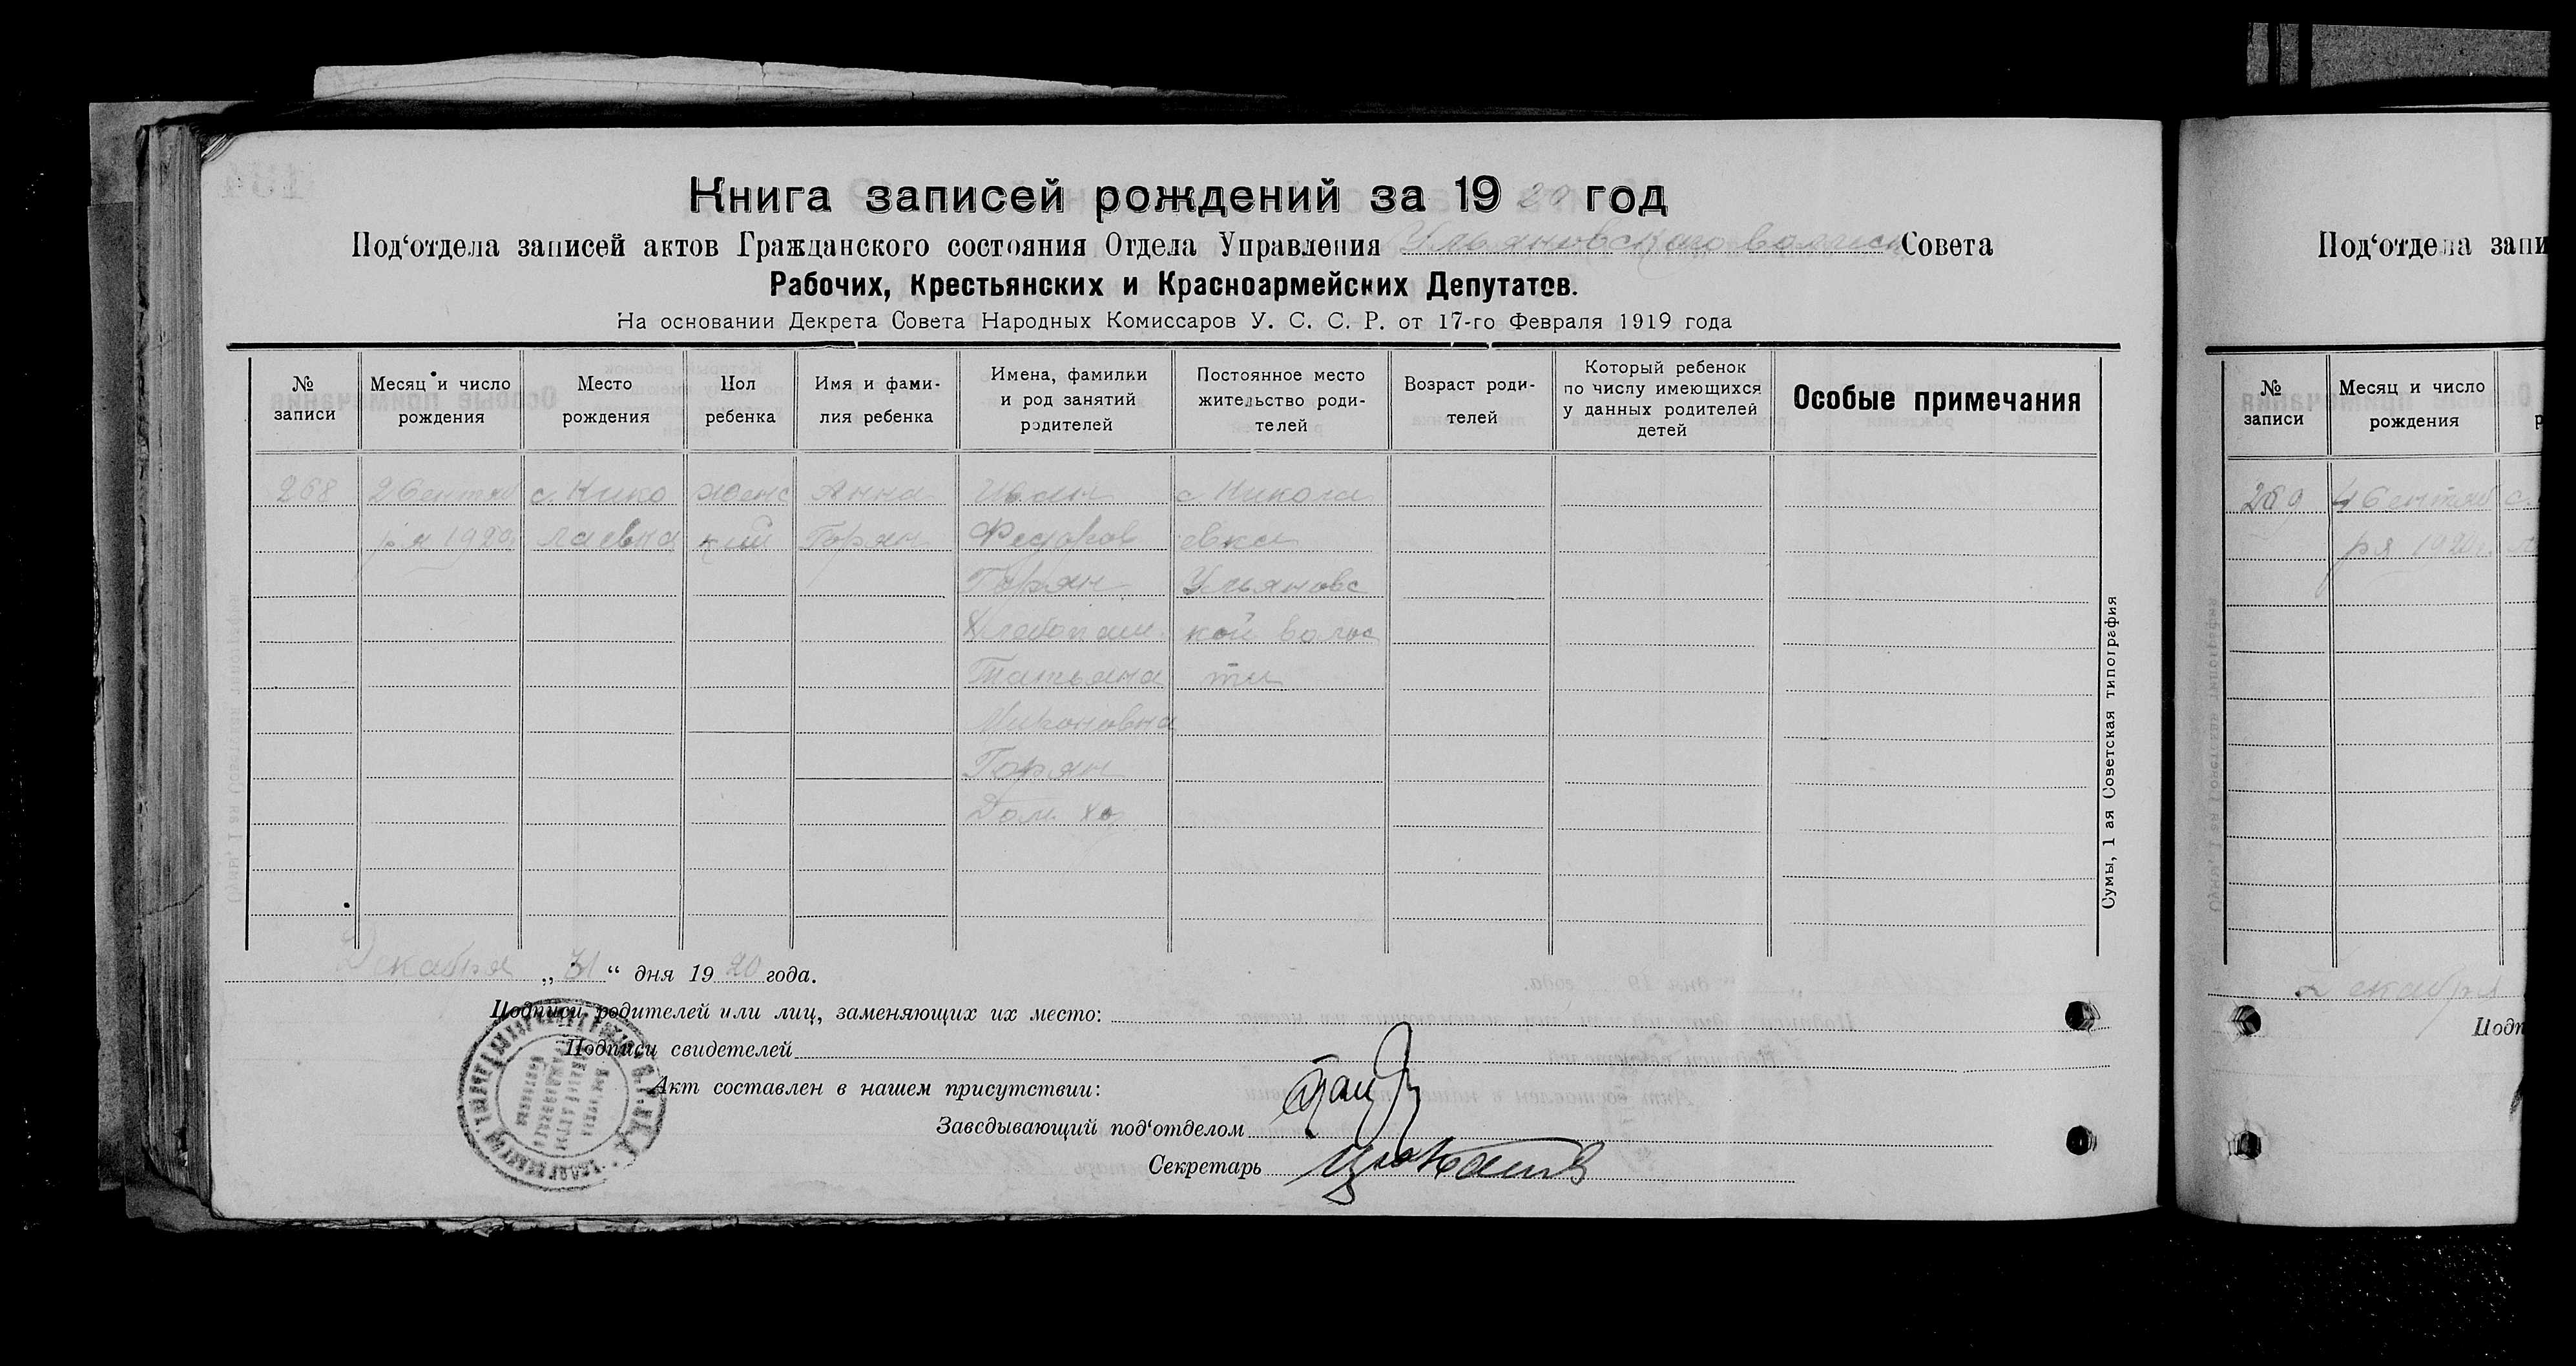 Книга записей рождений за 1920 год
Под‘отдела записей актов Гражданского состояния Отдела Управления Ульяновского волисп Совета
Рабочих, Крестьянских и Красноармейских Депутатов.
На основании Декрета Совета Народных Комиссаров У. С. С. Р. от 17-го Февраля 1919 года
№ записи
Месяц и число рождения
Место рождения
Пол ребенка
Имя и фамилия ребенка
Имена, фамилии и род занятий родителей
Постоянное место жительство родителей
Возраст родителей
Который ребенок по числу имеющихся у данных родителей детей
Особые примечания
268 2 Сентяб с. Нико женс Анна Иван с Никола
ря 1920 лаевка кий Горян Федоров евка
Горян Ульяновс
Хлебопаш. кой волос
Татьяна ти
Никоновна
Горян
Дом. хо
Декабря „31“ дня 1920 года.
Подписи родителей или лиц, заменяющих их место:
Подписи свидетелей
Акт составлен в нашем присутствии:
Заведывающий под‘отделом
Секретарь
Сумы, 1 ая Советская типография
Под‘отдела запи
№ записи
Месяц и число рождения
269 4 Сентяб с.
ря 1920 г.
Декабря
Подп